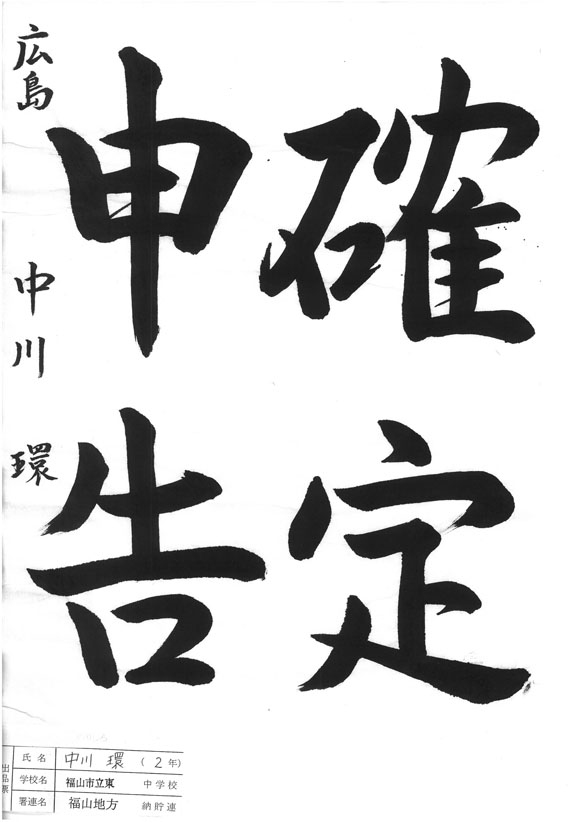 確定
申告
広島 中川 環
出品票
氏名 中川 環 (2年)
学校名 福山市立東 中学校
署連名 福山地方 納貯連